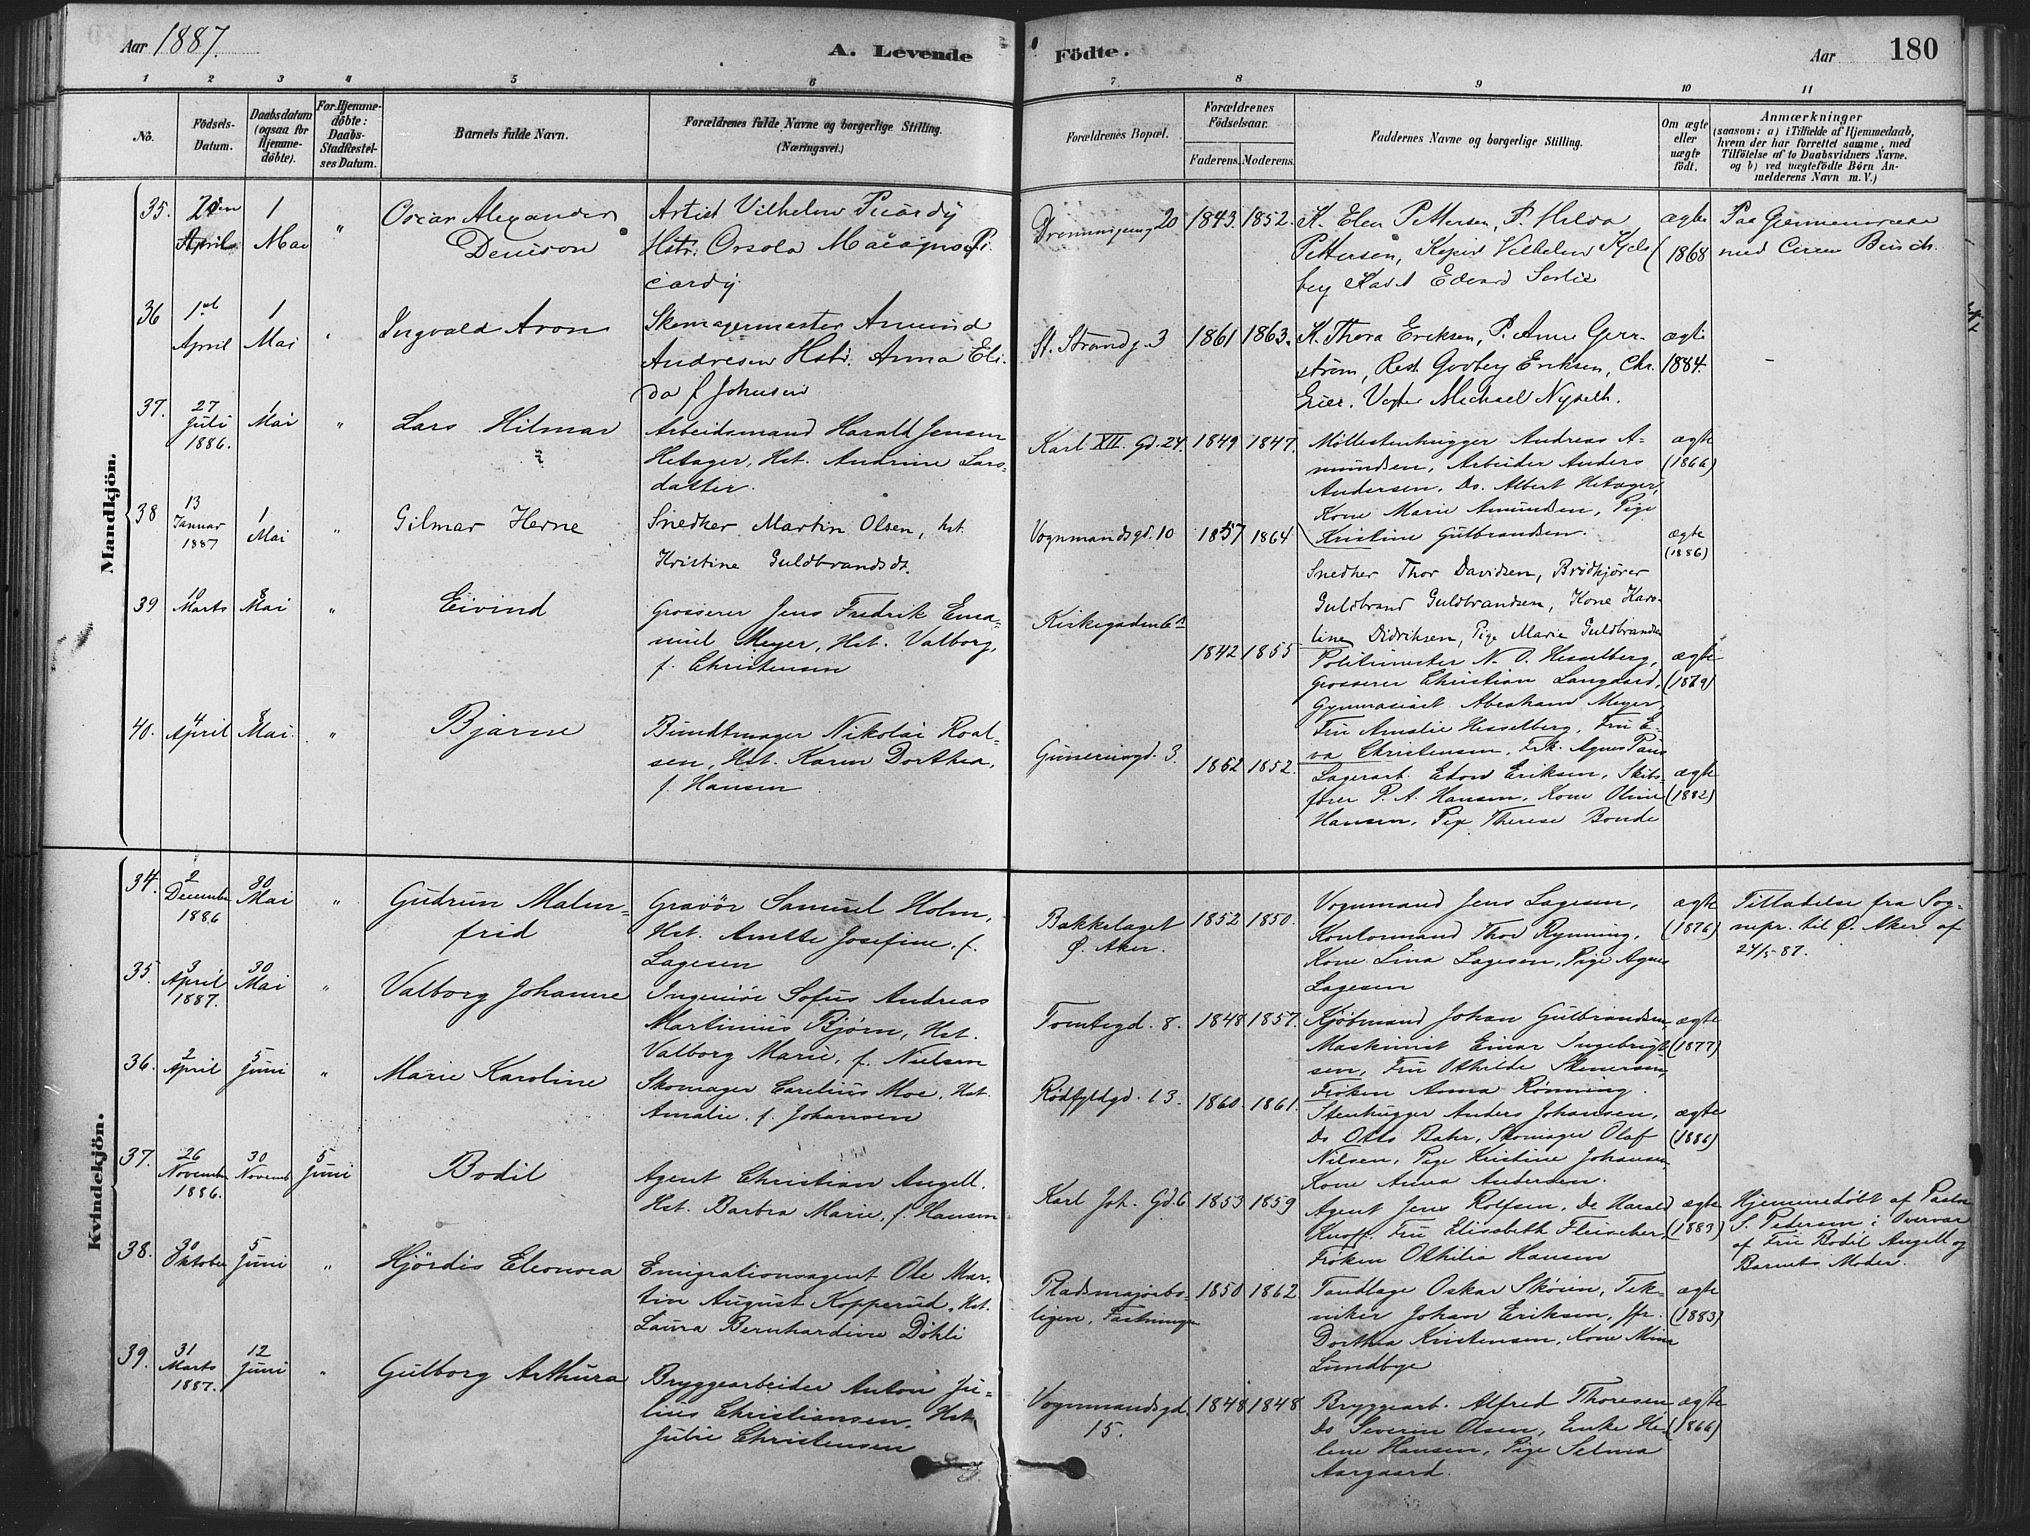 Aar 1887. A. Levende Födte. Aar 180
1 2 3 4 5 6 7 8 9 10 11
No.
Födsels-
Datum.
Daabsdatum
(ogsaa for
Hjemme-
döbte).
For Hjemme-
döbte:
Daabs-
Stadfæstel-
ses Datum.
Barnets fulde Navn.
Forældrenes fulde Navne og borgerlige Stilling.
(Næringsvei.)
Forældrenes Bopæl.
Forældrenes
Födselsaar.
Faderens. Moderens.
Faddernes Navne og borgerlige Stilling.
Om ægte
eller
uægte
födt.
Anmærkninger
(saasom: a) i Tilfælde af Hjemmedaab,
hvem der har forrettet samme, med
Tilföielse af to Daabsvidners Navne.
og b) ved uægtefödte Börn An-
melderens Navn m. V.)
Mandkjön.
35.
April
1
Mai
"
Oscar Alexander
Denison
Artist Vilhelm Picardy
Hstr. Orsola Picardy
Dronningensg 20
1843. 1852.
K. Elen Pettersen, P. Hilda
Pettersen, Kopist Vilhelm Kjels-
berg Kadt Edvard Sørlie
ægte
1868
Paa Gjennemreise
med Circus Busch.
36
1st
April
1
Mai
"
Ingvald Aron
Skomagermester Amund
Andresen Hstr. Anna Eli-
da f Johnsen
St. Strandg. 3
1861 1863.
K. Thora Eriksen, P. Anne Gerr-
strøm, Rest. Godberg Eriksen, Chr.
Michael Nyseth.
ægte
1884.
-
37.
27
Juli
1886.
1
Mai
"
Lars Hilmar
Arbeidsmand Harald Jensen
Hetager, Hst. Andrine Lars-
datter.
Karl XII. Gd. 24.
1849 1847.
Møllestenhugger Andreas A-
mundsen, Arbeider Anders
Andersen, Ds. Albert Hetager,
Kone Marie Amundsen, Pige
Kristine Gulbrandsen.
ægte
(1866)
38
13
Januar
1887
1
Mai
"
Gilmar Herne
Snedker Martin Olsen, hst.
Kristine Guldbrandsdt.
Vognmandsgd. 10
1857 1864
Snedker Thor Davidsen, Brødkjører
Guldbrand Guldbrandsen, Kone Karo-
line Didriksen, Pige Marie Guldbrandsen
ægte
(1886)
39
10
Marts
8
Mai
"
Eivind
Grosserer Jens Fredrik Ema-
nuel Meyer, Hst. Valborg,
f. Christensen
Kirkegaden 6B
1842 1855
Politimester N. O. Hesselberg,
Grosserer Christian Langaard,
Gymnasiast Abraham Meyer,
Fru Amalie Hesselberg, Fru E-
va Christensen, Frk. Agnes Paus
ægte
(1879)
40.
4
April
8
Mai.
"
Bjarne
Bundtmager Nikolai Roal-
sen, Hst. Karen Dorthea,
f. Hansen
Gunerusgd. 3.
1852 1852.
Lagerarb. Edon Eriksen, Skibs-
fører P. A. Hansen, Kone Oline
Hansen, Pige Therese Bonde
ægte
(1882)
Kvindekjön.
34.
2
December
1886
30
Mai
"
Gudrun Malm-
frid
Gravør Samuel Holm,
Hst. Anette Josefine, f.
Lagesen
Bækkelaget
Ø. Aker.
1852 1850.
Vognmand Jens Lagesen,
Kontormand Thor Rynning,
Kone Lina Lagesen, Pige Agnes
Lagesen
ægte
(1876)
Tilladelse fra Sog-
nepr. til Ø. Aker af
24/5-87.
35.
3
April
1887.
30
Mai
"
Valborg Johanne
Ingeniør Sofus Andreas
Martinius Bjørn, Hst.
Valborg Marie, f. Nielsen
Tomtegd. 8.
1848 1857.
Kjøbmand Johan Gulbrandsen,
Maskinist Einar Ingebrigt-
sen, Fru Othilde Skinersen,
Frøken Anna Rønning.
ægte
(1877)
36.
2
April
5
Juni
"
Marie Karoline
Skomager Carelius Moe, Hst.
Amalie, f. Johansen
Rødfyldgd. 13.
1860. 1861.
Stenhugger Anders Johansen,
Ds Otto Baker, Skomager Olaf
Nilsen, Pige Kristine Johansen
Kone Anna Andersen.
ægte
(1886)
37.
26
November
1886.
30
Novemb
5
Juni
Bodil
Agent Christian Angell,
Hst. Barbra Marie, f. Hansen
Karl Joh. Gd. 6
1853 1859
Agent Jens Rolfsen, Do Harald
Knoff, Fru Elisabeth Fleischer,
Frøken Othilia Hansen
ægte
(1883)
Hjemmedøbt af Pastor
S. Pedersen i Overvær
af Fru Bodil Angell og
Barnets Moder.
38.
30
Oktober
5
Juni
"
Hjördis Eleonora
Emigrationsagent Ole Mar-
tin August Kopperud, Hst.
Laura Bernhardine Döhli
Pladsmajorbo-
ligen, Fæstningen
1850 1862
Tandlæge Oskar Skøien, Tek-
niker Johan Eriksen, Jfr.
Dorthea Kristensen, Kone Mina
Lundbye
ægte
(1883)
39.
31
Marts
1887.
12
Juni
"
Gulborg Arthura
Bryggearbeider Anton Ju-
lius Christiansen, Hst.
Julie Christensen
Vognmandsgd.
15.
1848 1848
Bryggearb. Alfred Thoresen
Ds Severin Olsen, Enke He-
lene Hansen, Pige Selma
Aargaard.
ægte
(1866)